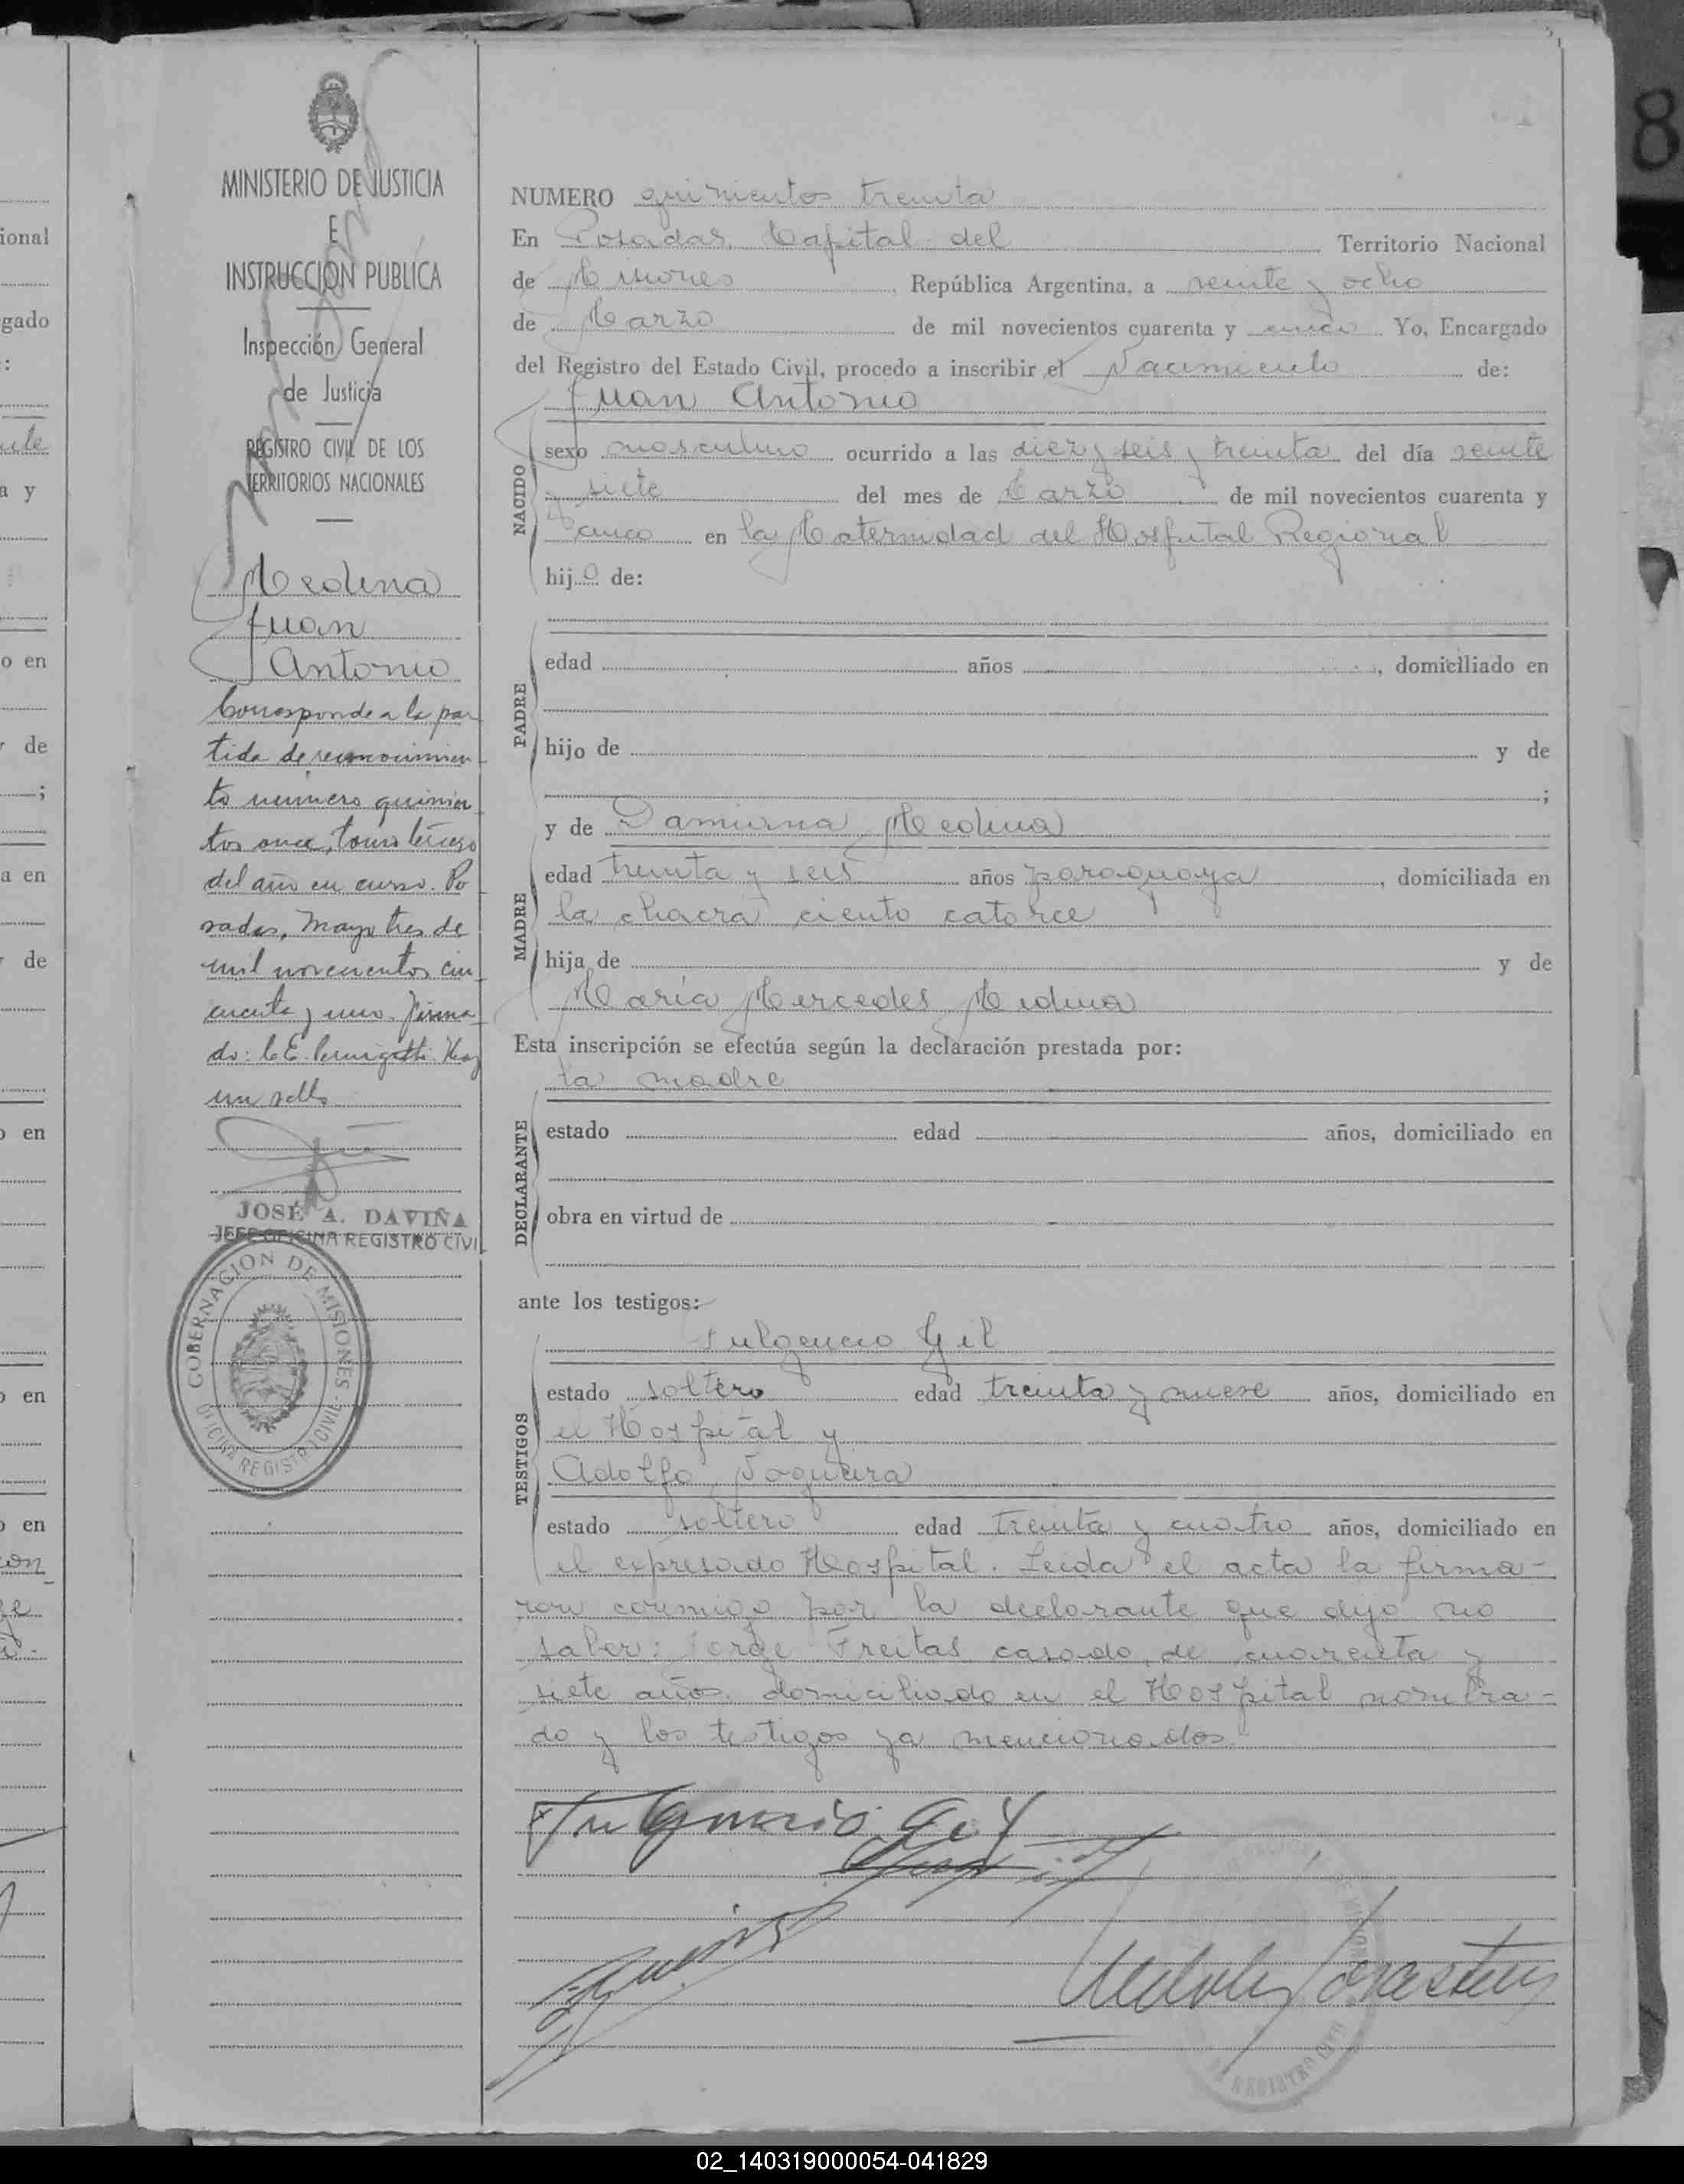 MINISTERIO DE JUSTICIA
E
INSTRUCCION PUBLICA
Inspección General
de Justicia
REGISTRO CIVIL DE LOS
TERRITORIOS NACIONALES
Medina
Juan
Antonio
Corresponde a la par
tida de reconocimien
to número quinien
tos once, tomo tercero
del año en curso. Po
sadas, Mayo tres de
mil novecientos cin
cuenta y uno. Firma
do: C. E. Hay
un sello
JOSÉ A. DAVIÑA
JEFE OFICINA REGISTRO CIVIL
GOBERNACION DE MISIONES
OFICINA REGISTRO CIVIL
NUMERO quinientos treinta
En Posadas, Capital del Territorio Nacional
de Misiones, República Argentina, a veinte y ocho
de Marzo de mil novecientos cuarenta y cinco Yo, Encargado
del Registro del Estado Civil, procedo a inscribir el Nacimiento de:
Juan Antonio
NACIDO
sexo masculino ocurrido a las diez y seis y treinta del día veinte
y siete del mes de Marzo de mil novecientos cuarenta y
cinco en la Maternidad del Hospital Regional
hijo de:
PADRE
edad años , domiciliado en
hijo de y de
;
y de Damiana Medina
MADRE
edad treinta y seis años paraguaya, domiciliada en
la chacra ciento catorce
hija de y de
María Mercedes Medina
Esta inscripción se efectúa según la declaración prestada por:
la madre
DECLARANTE
estado edad años, domiciliado en
obra en virtud de
ante los testigos:
Fulgencio Gil
TESTIGOS
estado soltero edad treinta y nueve años, domiciliado en
el Hospital y
Adolfo
estado soltero edad treinta y cuatro años, domiciliado en
el expresado Hospital. Leída el acta la firma-
ron conmigo por la declarante que dijo no
saber: Jorge Freitas casado, de cuarenta y
siete años domiciliado en el Hospital nombra-
do y los testigos ya mencionados.
Fulgencio Gil
REGISTRO CIVIL
02_140319000054-041829